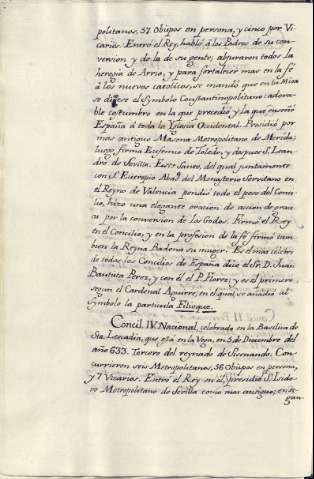 politanos, 57 Obispos en persona, y cinco por Vi-
carios. Entró el Rey, habló á los Padres de su con-
version y de la de su gente; abjuraron todos la
heregia de Arrio, y para fortalecer mas en la fé
á los nuevos catolicos, se mandó que en la Misa
se dijese el Symbolo Constantinopolitano: adora-
ble costumbre en la que precedió y la que enseñó
España á toda la Iglesia Occidental. Presidió por
mas antiguo Masona Metropolitano de Merida;
luego, firma Eufemio de Toledo, y despues S. Lean-
dro de Sevilla. Este Santo, del qual juntamente
con S. Eutropio Abad del Monasterio Servitano en
el Reyno de Valencia pendió todo el peso del Conci-
lio, hizo una elegante oracion de accion de graci-
as por la conversion de los Godos. Firmó el Rey
en el Concilio, y en la profesion de la fé firmó tam-
bien la Reyna Baddona su muger. Es el mas célebre
de todos los Concilios de España dice el Sr. D. Juan
Bautista Perez, y con él el P. Florez; y es el primero
segun el Cardenal Aguirre, en el qual se añadió al
Symbolo la particula Filioque.
Concil. IV. Nacional, celebrado en la Basilica de
Sta. Leocadia, que está en la Vega, en 5 de Diciembre del
año 633. Tercero del reynado de Sisenando. Con-
currieron seis Metropolitanos, 56 Obispos en persona,
y 7 Vicarios. Entró el Rey en él; presidió S. Isido-
ro Metropolitano de Sevilla como mas antiguo;